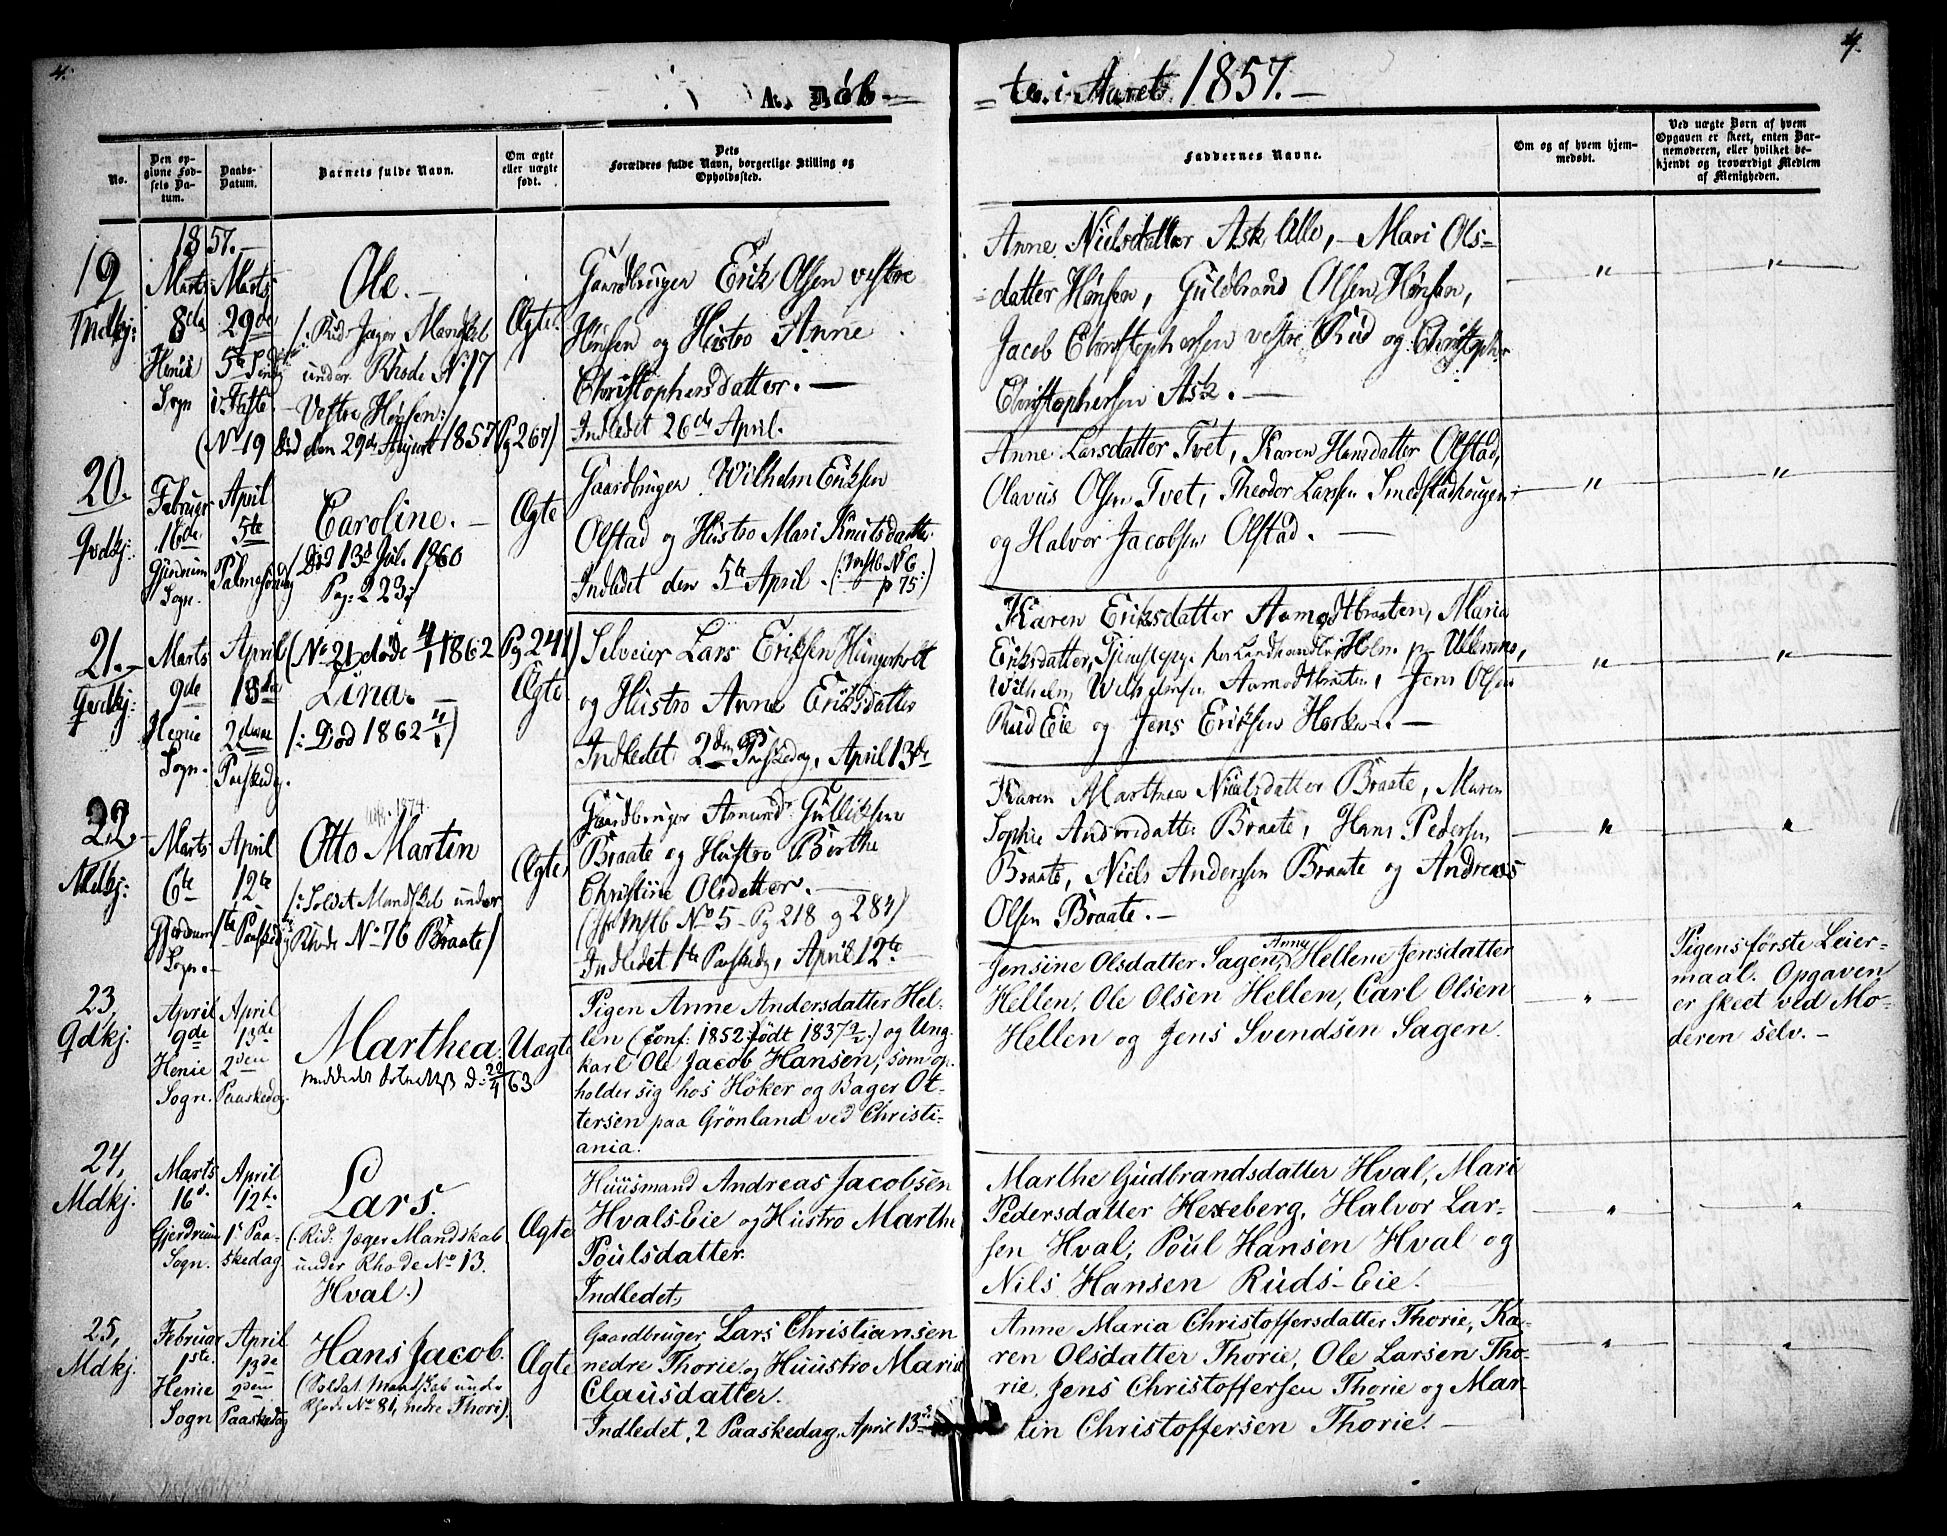 4.
4.
A. Døb-
te i Aaret 1857.
No.
Den op-
givne Fød-
sels Da-
tum.
Daabs-
Datum.
Barnets fulde Navn.
Om ægte
eller uægte
født.
Dets
Forældres fulde Navn, borgerlige Stilling og
Opholdssted.
Faddernes Navne.
Om og af hvem hjem-
medøbt.
Ved uægte Børn af hvem
Opgaven er skeet, enten Bar-
nemoderen, eller hvilket be-
kjendt og troværdigt Medlem
af Menigheden.
1857.
19
Marts
8de
Henie
Sogn
Marts
29de
i Faste.
Ole.
/: Rid. Jæger Mandskab
under Rhode No 17
Vestre Hønsen:/
(No 19 Død den 29de August 1857 Pg 267)
Ægte.
Gaardbruger Erik Olsen vestre
Hønsen og Hustro Anne
Christophersdatter.
Indledet 26de April.
Anne Nielsdatter Ask lille, Mari Ols-
datter Hønsen, Guldbrand Olsen Hønsen,
Jacob Christophersen vestre Rud og Christopher
Christophersen Ask.
20.
Gjerdrum
Sogn.
Februar
16de
April
5te
Palmesøndag
Caroline.
/Død 13d Jul. 1860
Pag: 223:/
Ægte
Gaardbruger Wilhelm Eriksen
Olstad og Hustro Mari Knutsdatter
Indledet den 5te April.
p 75:)
Anne Larsdatter Tvet, Karen Hansdatter Olstad,
Olavus Olsen Tvet, Theodor Larsen Smedstadhougen
og Halvor Jacobsen Olstad.
21.
Marts
9de
Henie
Sogn.
April
13de
2den
Paaskedag.
(No 21 døde 4/1 1862 Pg 241)
Lina.
/: Død 1862 4/1)
Ægte
Selveier Lars Eriksen Hungerholt
og Hustro Anne Eriksdatter
Indledet 2den Paaskedag, April 13de
Karen Eriksdatter Aamodtbraaten, Maria
Eriksdatter, Tjenestepige hos Landhandler Holm p. Ullerens,
Wilhelm Wilhelmsen Aamodtbraaten, Jens Olsen
Rud Eie og Jens Eriksen
22
Marts
6te
Gjerdrum
Sogn.
April
12te
1te Paaskedag
1874.
Otto Martin
/: Soldet Mandskab under
Rhode No 76 Braate/
Ægte
Gaardbruger Asmund Gulliksen
Braate og Hustro Birthe
Christine Olsdatter.
No 5 - Pg 218 og 284)
Indledet 1te Paaskedag, April 12te
Karen Marthea Nielsdatter Braate, Maren
Sophie Andersdatter Braate, Hans Pedersen
Braate, Niels Anderssen Braate og Andreas
Olsen Braate.
23,
Gdkj.
April
9de
Henie
Sogn.
April
13de
2den
Paaskedag.
Marthea.
Uægte
Pigen Anne Andersdatter Hel-
len (Conf: 1852: født 1837 9/2.) og Ung-
karl Ole Jacob Hansen, som op-
holder sig hos Høker og Bager Ot-
tersen paa Grönland ved Christi-
ania.
Jensine Olsdatter Sagen, Anne Hellene Jensdatter
Hellen, Ole Olsen Hellen, Carl Olsen
Hellen og Jens Svendsen Sagen.
Pigens förste Leier-
maal. Opgaven
er skeet ved Mo-
deren selv.
24,
Mdkj.
Marts
16d.
Gjerdrum
Sogn.
April
12te
1e Paa-
skedag
Lars.
(: Rid: Jæger Mandskab
under Rhode No 13.
Hval.)
Ægte
Huusmand Andreas Jacobsen
Hvals-Eie og Hustro Marthe
Poulsdatter.
Indledet,
Marthe Gudbrandsdatter Hval, Mari
Pedersdatter Hexeberg, Halvor Lar-
sen Hval, Poul Hansen Hval og
Nils Hansen Ruds-Eie.
25,
Mdkj.
Februar
1ste.
Henie
Sogn
April
13de
2den
Paaskedag
Hans Jacob.
(Soldat Mandskab under
Rhode No 81, nedre Thori).
Ægte
Gaardbruger Lars Christiansen
nedre Thorie og Huustro Maria
Clausdatter.
Indledet, 2 Paaskedag. April 13de
Anne Maria Christoffersdatter Thorie, Ka-
ren Olsdatter Thorie, Ole Larsen Tho-
rie, Jens Christoffersen Thorie og Mar-
tin Christoffersen Thorie.